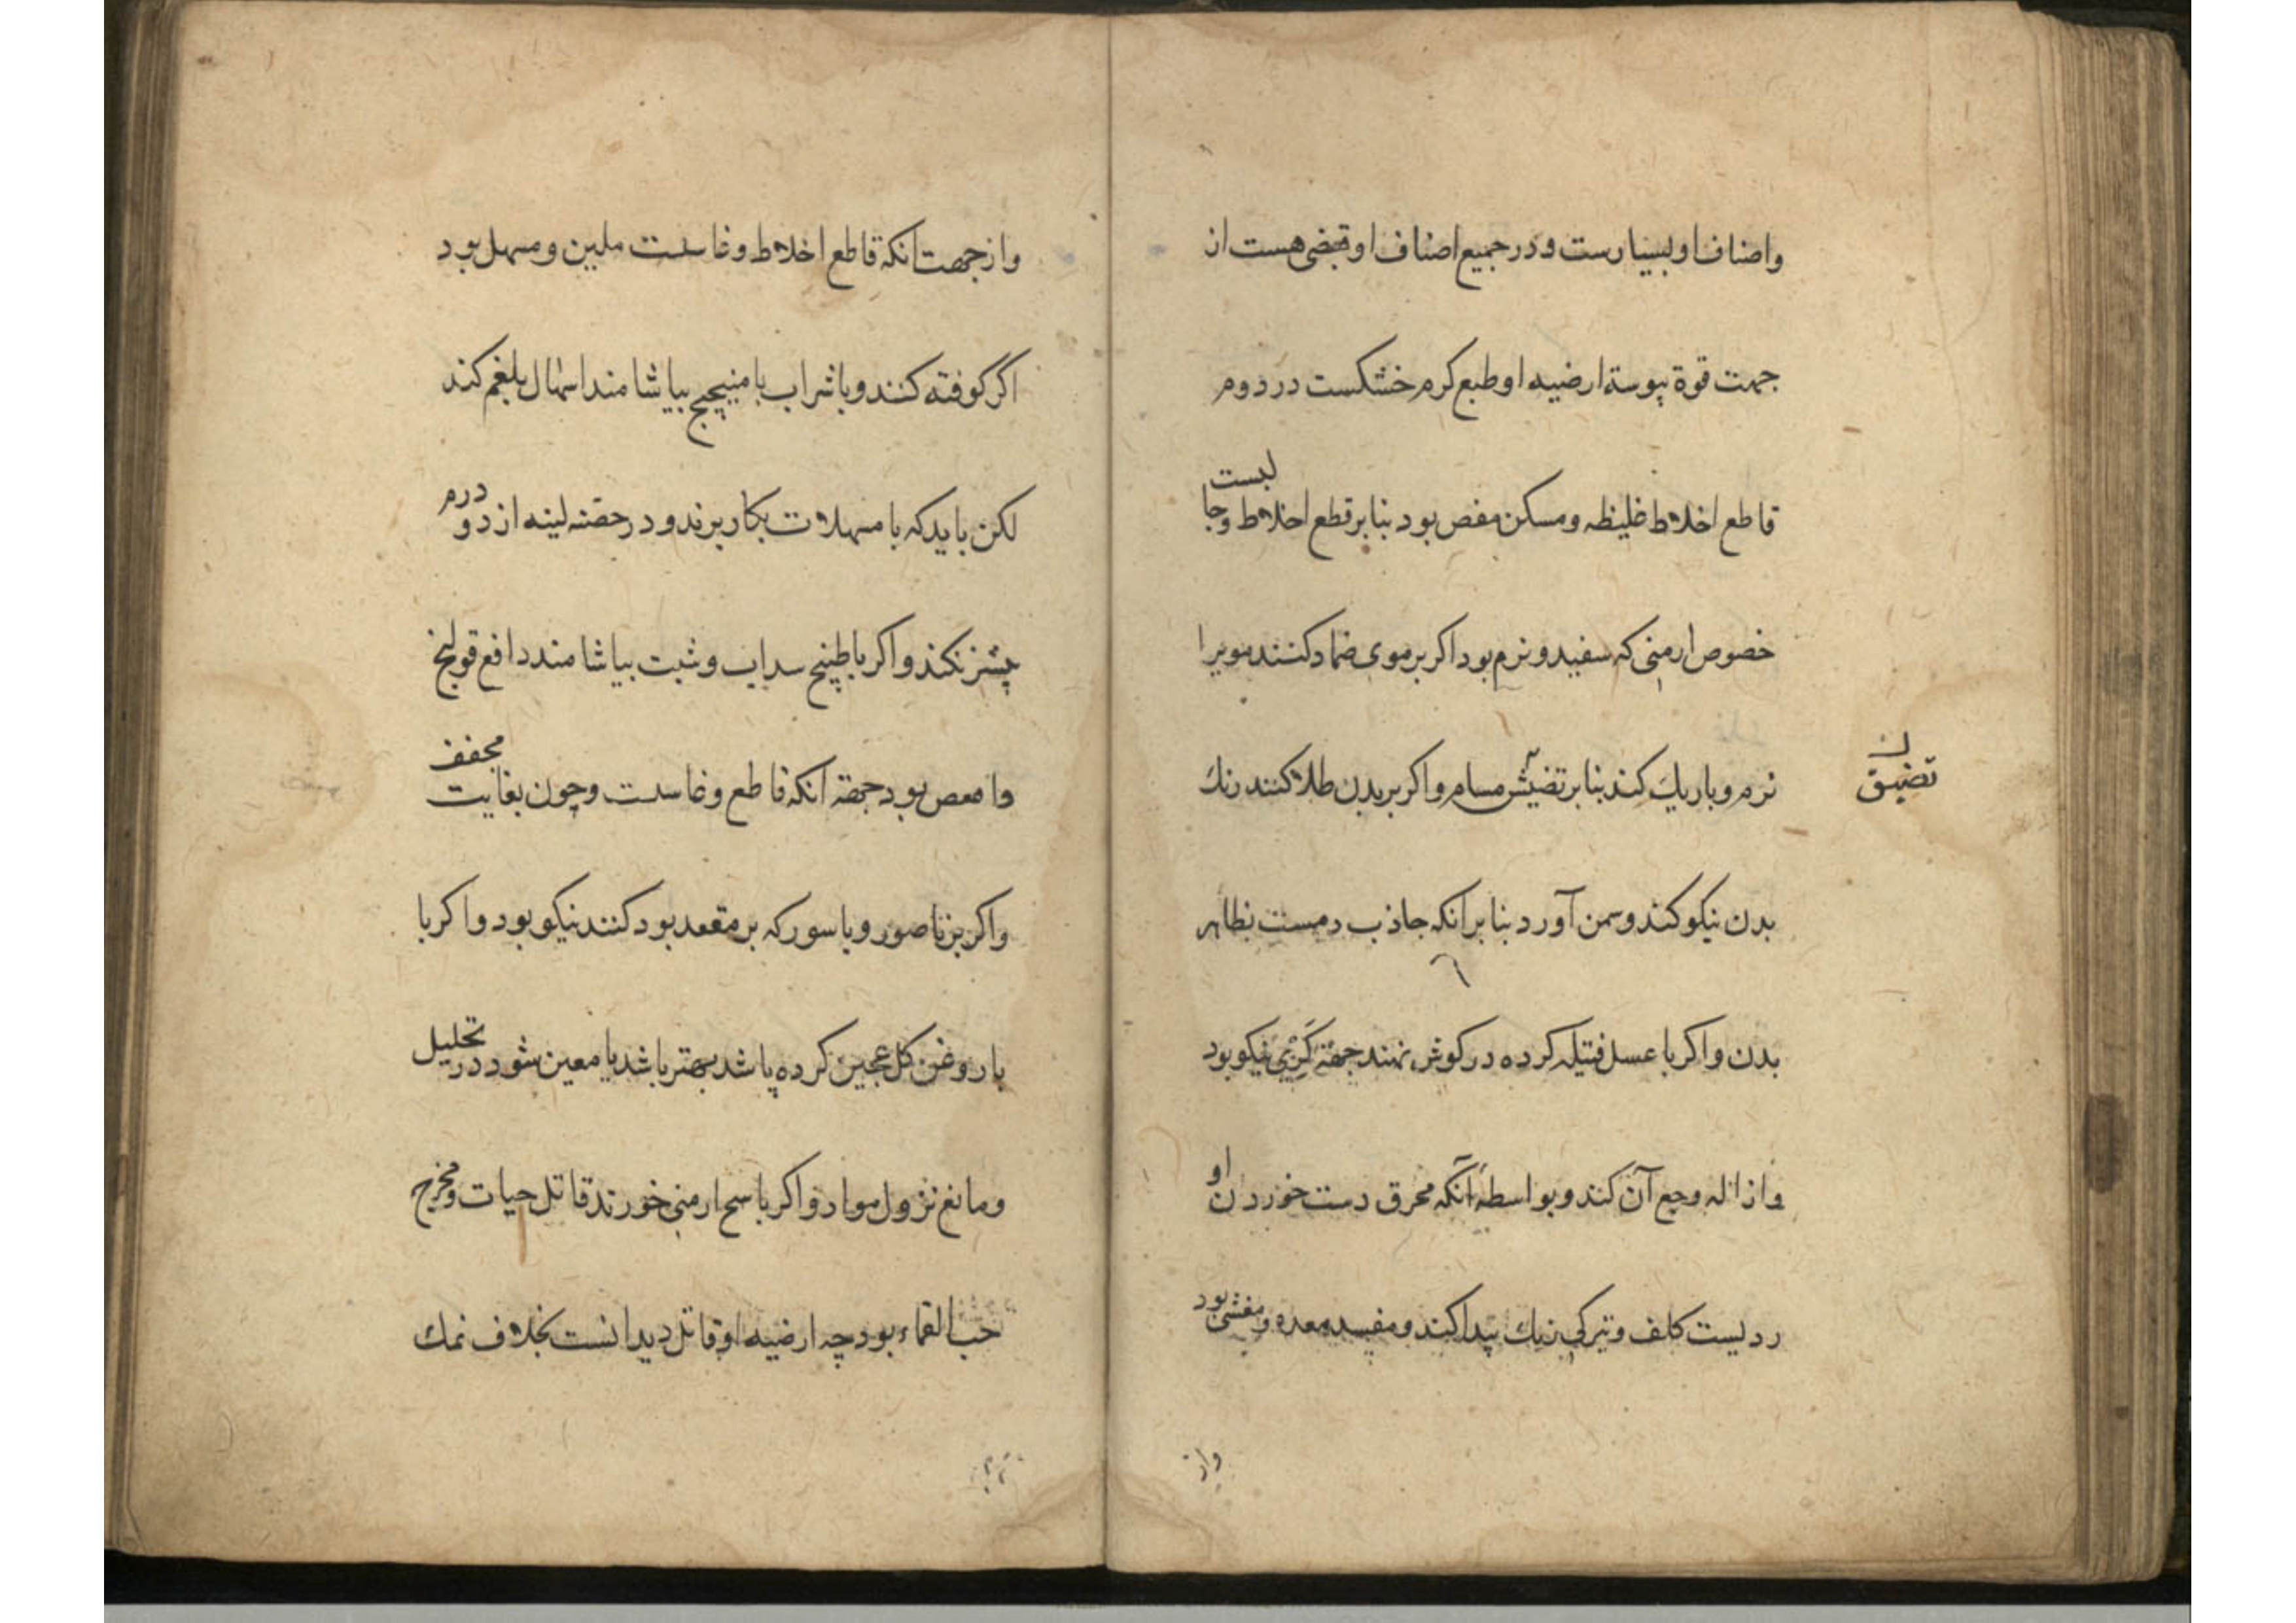 واضاف او بسیارست و در جمیع اصناف او قبضی هست از
جهت قوة یبوسة ارضیه او طبع کرم خشکست در دوم
قاطع اخلاط غلیظه و مسکن مغص بود بنا بر قطع اخلاط و جا
لیست
خصوص ارمنی که سفید و نرم بود اکر بر موی ضماد کنند مویرا
نرم و باریك کند بنا بر تضیش مسام و اکر بر بدن طلا کنند رنك
تضیق
بدن نیکو کند و سمن آورد بنا بر انکه جاذب دمست بظاهر
بدن و اکر با عسل فتیله کرده در کوش نهند جهة کری نیکو بود
و ازاله وجع آن کند و بواسطه آنکه محرق دست خوردن او
ردیست کلف و تیرکی رنك پیدا کند و مفسد معده و مغشی بود
واز
و از جهت انکه قاطع اخلاط و غاسلست ملین و مسهل بود
اکر کوفته کنند و با شراب یا میبختج بیاشامند اسهال بلغم کند
لکن باید که با مسهلات بکار برند و در حقنه لینه از دو درم
پیشتر نکند و اکر با طبیخ سداب و شبت بیاشامند دافع قولنج
و امغص بود جهة آنکه قاطع و غاسلست و چون بغایت مجفف
و اکر بر ناصور و باسور که بر مقعد بود کنند نیکو بود و اکر با
یا روغن کل عجین کرده باشد بهتر باشد یا معین شود در تحلیل
و مانع نزول مواد و اکر با سح ارمنی خورند قاتل حیات و مخرج
حب القرع بود چه ارضیه او قاتل دیدانست بخلاف نمك